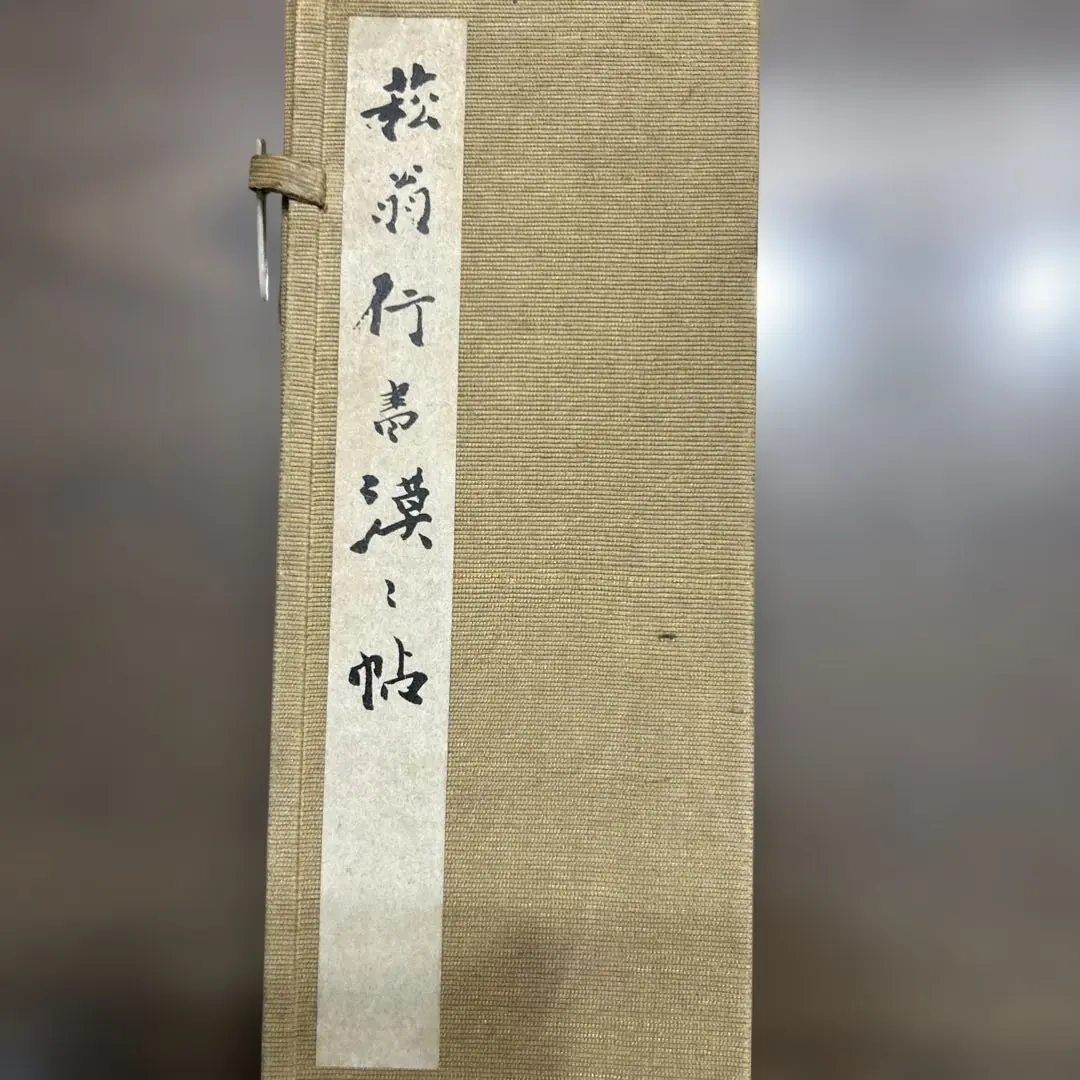 菘翁行書漠〻帖